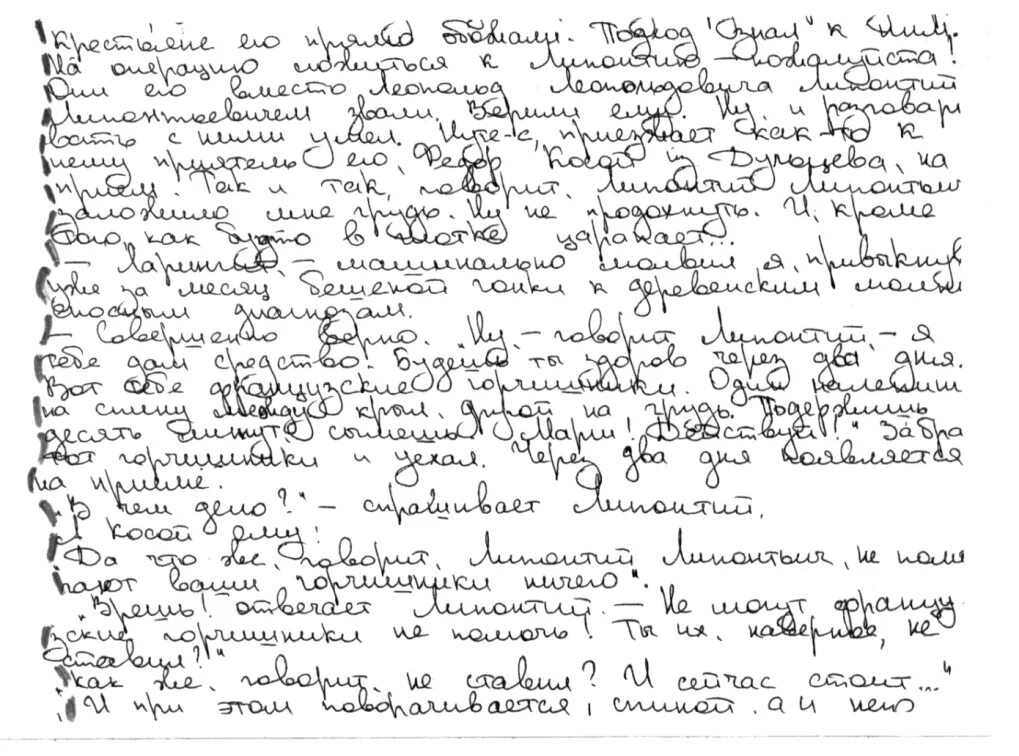 Крестьяне его прямо обожали. Подход знал к ним.
На операцию ложиться к Липонтию – пожалуйста!
Они его вместо Леопольд Леопольдовича Липонтий
Липонтьевичем звали. Верили ему. Ну и разговари
вать с ними умел. Нуте-с, приезжает как-то к
нему приятель его, Федор Косой из Дульцева, на
прием. Так и так, говорит, Липонтий Липонтьич
заложило мне грудь. Ну не продохнуть. И, кроме
того, как будто в глотке царапает...
– Ларингит, – машинально молвил я, привыкнув
уже за месяц бешеной гонки к деревенским молни
еносным диагнозам.
– Совершенно верно. „Ну, – говорит Липонтий, – я
тебе дам средство. Будешь ты здоров через два дня.
Вот тебе французские горчишники. Один налепишь
на спину между крыл, другой на грудь. Подержишь
десять минут, сымешь. Марш! Действуй!" Забра
тот горчишники и уехал. Через два дня появляется
на приеме.
„В чем дело?" – спрашивает Липонтий.
А Косой ему:
„Да что же, говорит, Липонтий Липонтьич, не помо
гают ваши горчишники ничего".
„Врешь! отвечает Липонтий. – Не могут францу
зские горчишники не помочь! Ты их, наверное, не
ставил?"
„Как же, говорит, не ставил? И сейчас стоит..."
„И при этом поворачивается, спиной, а у него